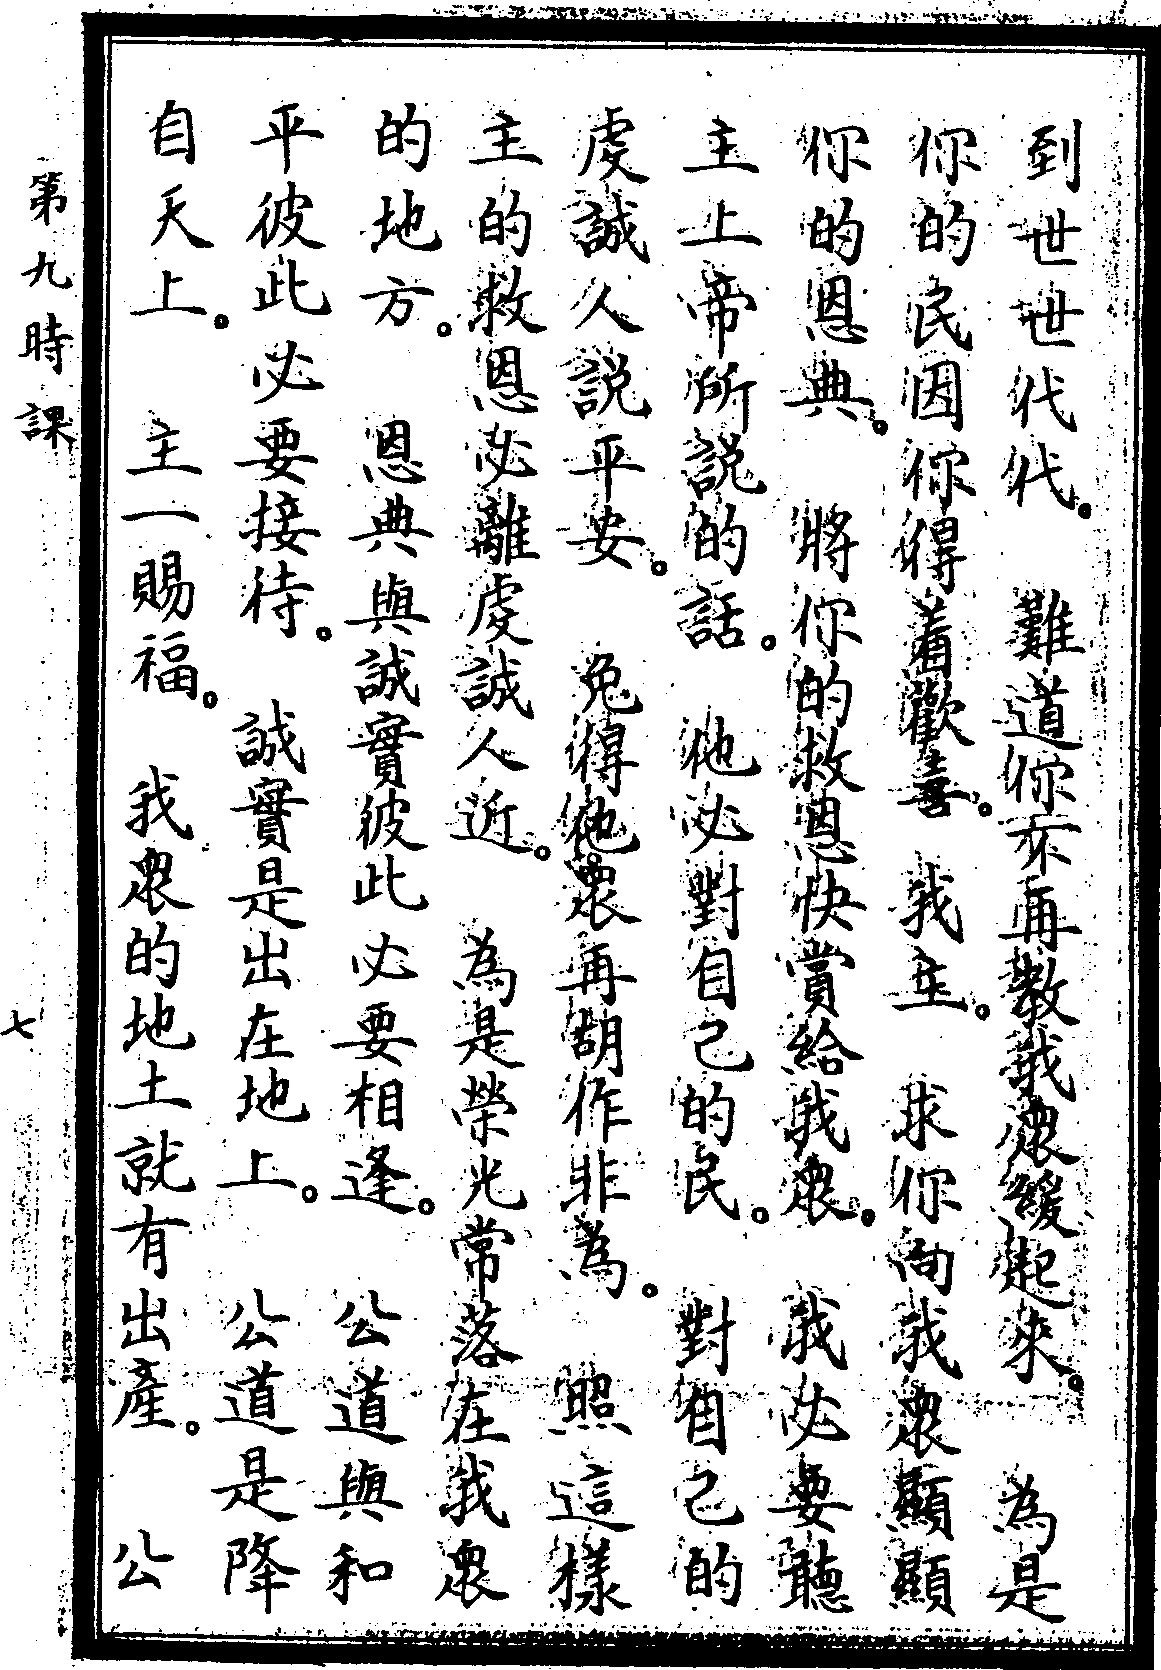 到世世代代。難道你不再教我眾緩起來。為是
你的民因你得着歡喜。我主。求你向我眾顯顯
你的恩典。將你的救恩快賞給我眾。我必要聽
主上帝所説的話。他必對自己的民。對自己的
虔誠人説平安。免得他眾再胡作非為。照這樣
主的救恩必離虔誠人近。為是榮光常落在我眾
的地方。恩典與誠實彼此必要相逢。公道與和
平彼此必要接待。誠實是出在地上。公道是降
自天上。主一賜福。我眾的地土就有出產。公
第九時課
七